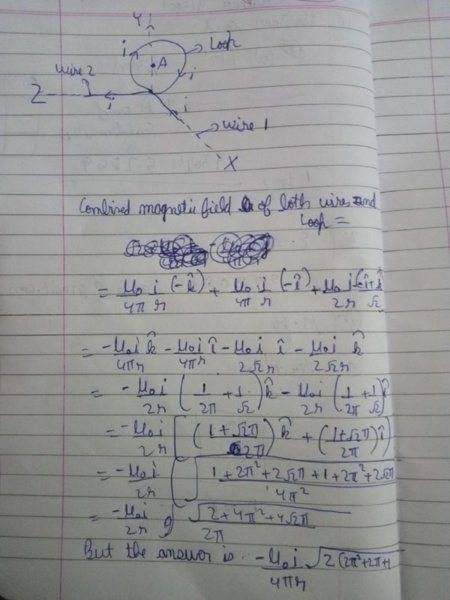 Y
i
Loop
A
i
wire 2
Z
i
i
wire 1
X
Combined magnetic field of both wires and
Loop =
= μ₀ i/4π r (-k̂) + μ₀ i/4π r (-î) + μ₀ i/2r (-î+k̂/√2
= -μ₀ i/4π r k̂ - μ₀ i/4π r î - μ₀ i/2√2 r î - μ₀ i/2√2 r k̂
= -μ₀ i/2r (1/2π + 1/√2) k̂ - μ₀ i/2r (1/2π + 1/√2) î
= -μ₀ i/2r [(1+√2π/2π) k̂ + (1+√2π/2π) î
= -μ₀ i/2r [√1+2π²+2√2π+1+2π²+2√2π/4π²
= -μ₀ i/2r √2+4π²+4√2π/2π
But the answer is -μ₀ i/4π r √2(2π²+2π+1